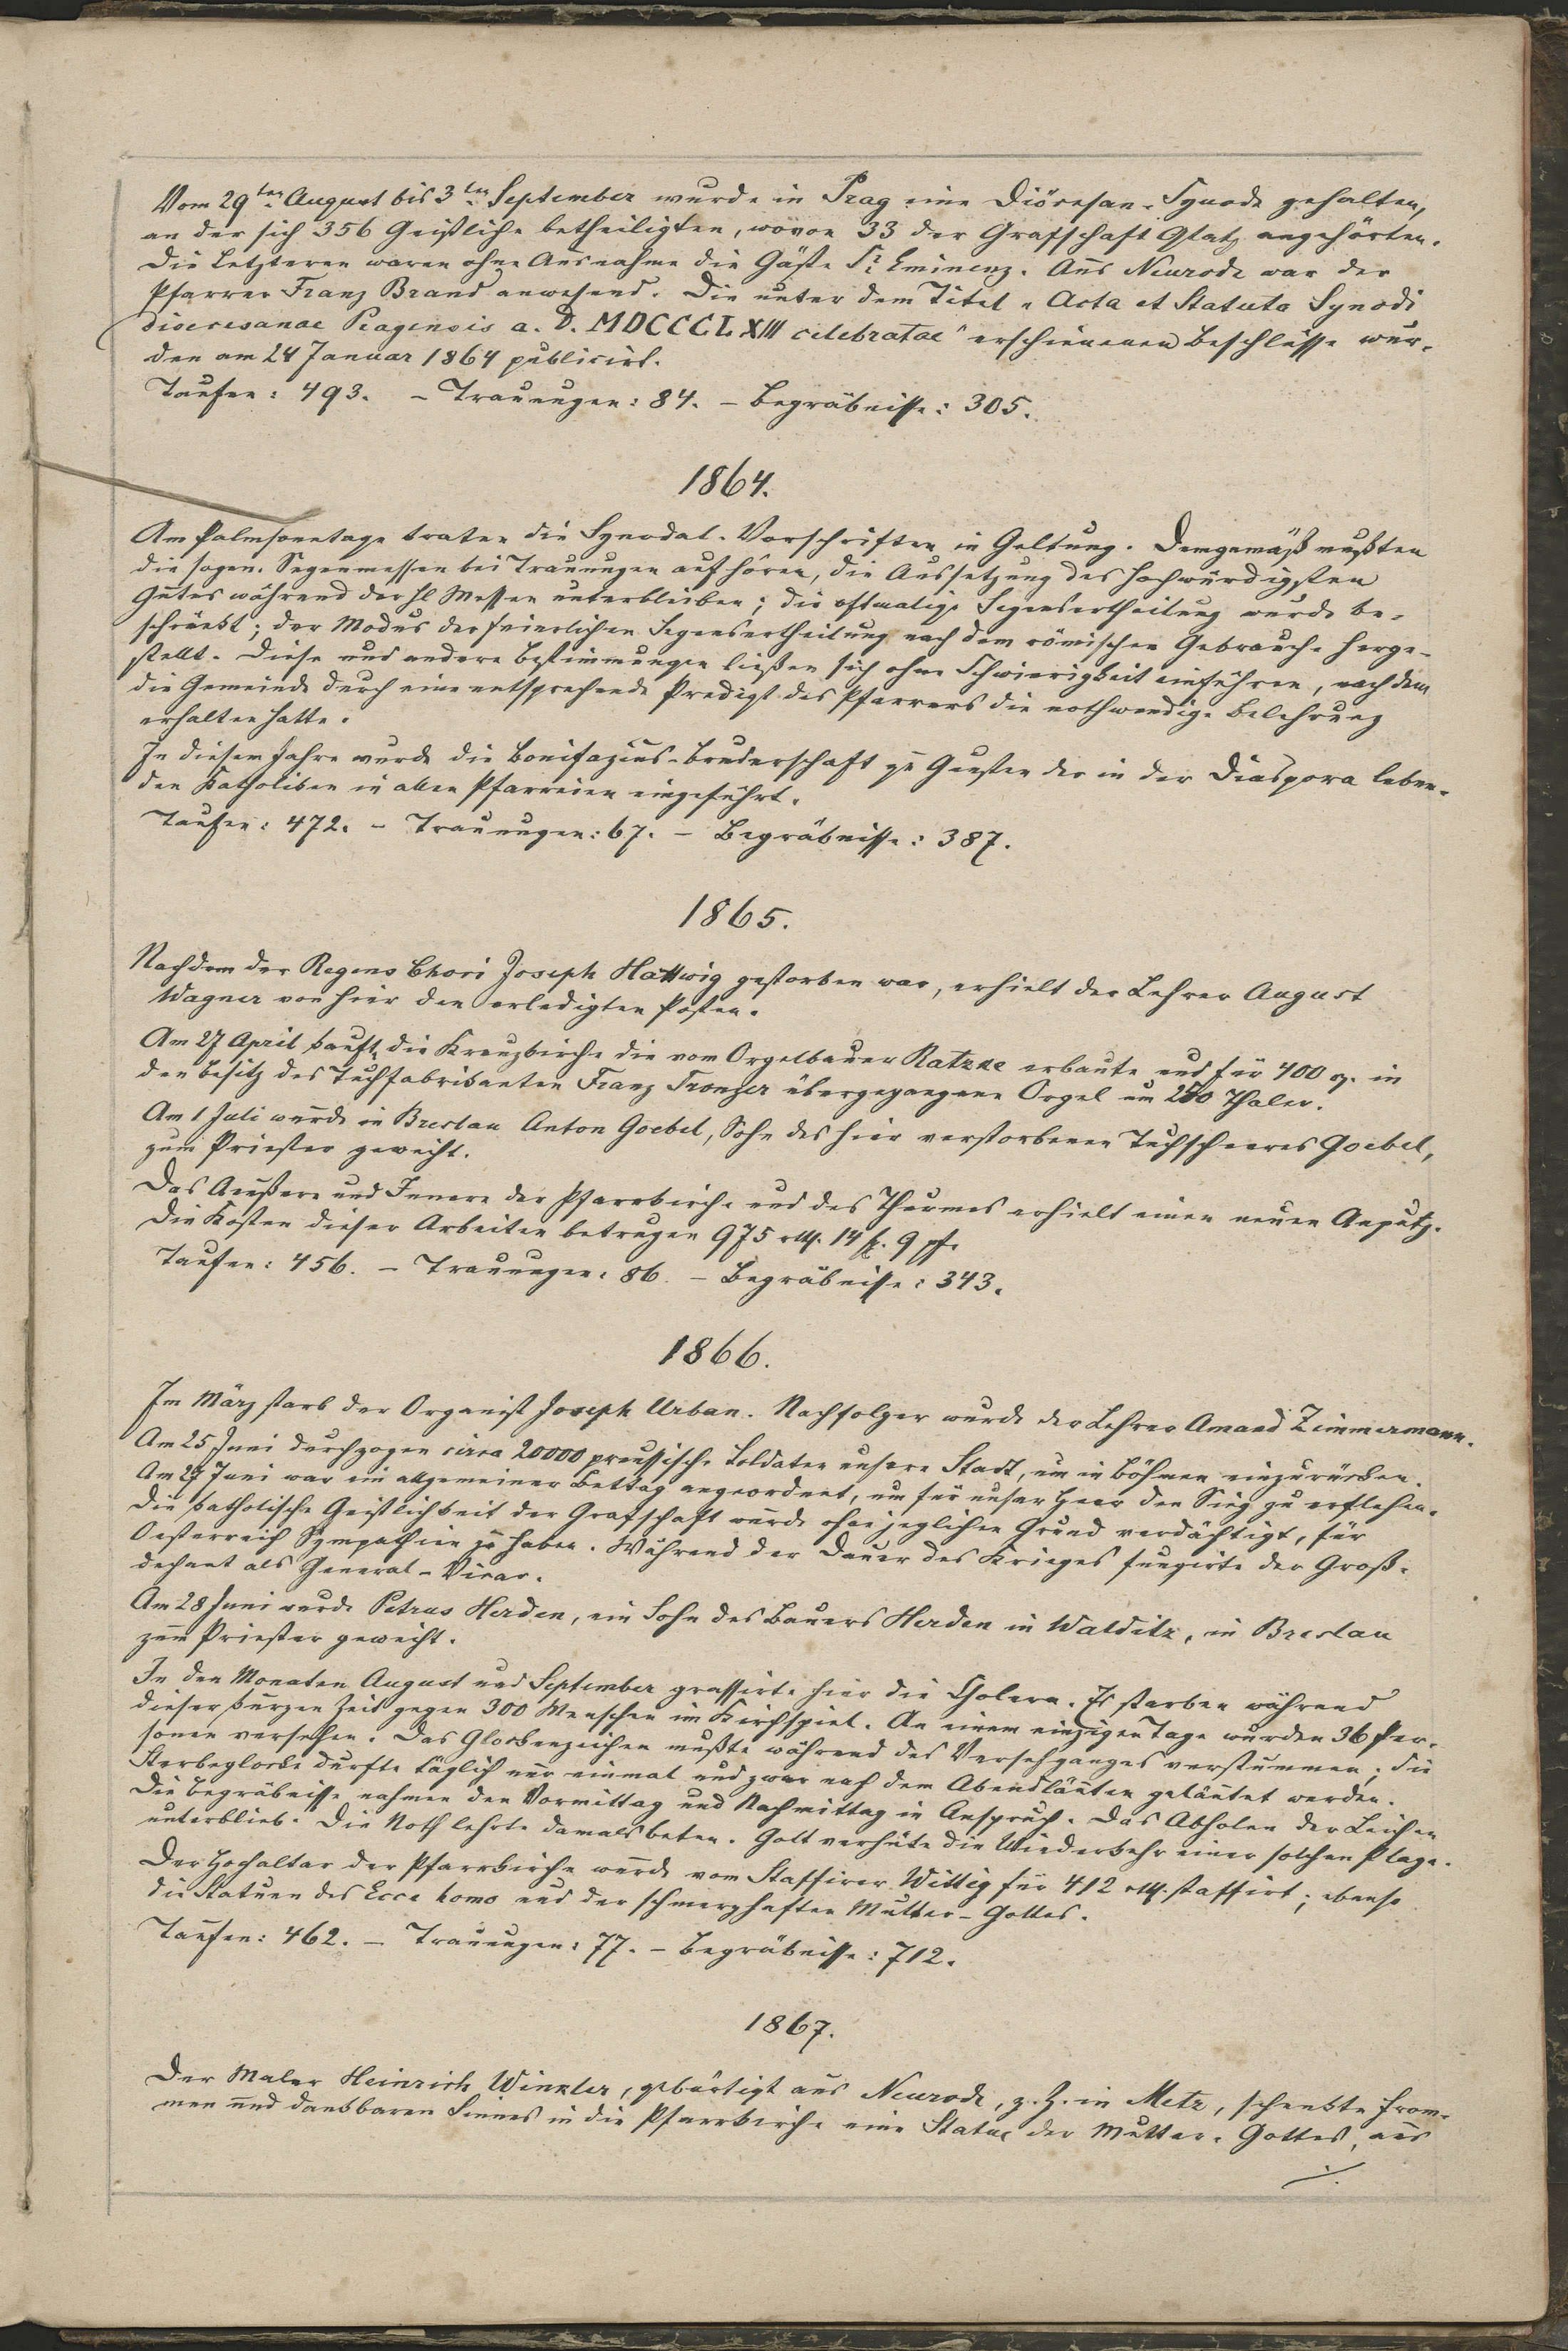 Vom 29ten August bis 3ten September wurde in Prag eine Diöcesan-Synode gehalten,
an der sich 356 Geistliche betheiligten, wovon 33 der Grafschaft Glatz angehörten.
Die Letzteren waren ohne Ausnahme die Gäste Sr Eminenz. Aus Neurode war der
Pfarrer Franz Brand anwesend. Die unter dem Titel "Acta et Statuta Synodi
dioecesanae Pragensis a. D. MDCCCLXIII celebratae" erschienenen Beschlüsse wur-
den am 24 Januar 1864 publicirt.
Taufen: 493. – Trauungen: 84. – Begräbnisse: 305.
1864.
Am Palmsonntage traten die Synodal-Vorschriften in Geltung. Demgemäß mußten
die sogen. Segenmessen bei Trauungen aufhören, die Aussetzung des hochwürdigsten
Gutes während der hl Messen unterbleiben; die oftmalige Segensertheilung wurde be-
schränkt; der Modus der feierlichen Segensertheilung nach dem römischen Gebrauche herge-
stellt. Diese und andere Bestimmungen ließen sich ohne Schwierigkeit einführen, nachdem
die Gemeinde durch eine entsprechende Predigt des Pfarrers die nothwendige Belehrung
erhalten hatte.
In diesem Jahre wurde die Bonifazius-Bruderschaft zu Gunsten der in der Diaspora leben-
den Katholiken in allen Pfarreien eingeführt.
Taufen: 472. – Trauungen: 67. – Begräbnisse: 387.
1865.
Nachdem der Regens Chori Joseph Hattwig gestorben war, erhielt der Lehrer August
Wagner von hier den erledigten Posten.
Am 27 April kaufte die Kreuzkirche die vom Orgelbauer Ratzke erbaute und für 400 in
den Besitz des Tuchfabrikanten Franz Tronzer übergegangene Orgel um 250 Thaler.
Am 1 Juli wurde in Breslau Anton Goebel, Sohn des hier verstorbenen Tuchscheeres Goebel,
zum Priester geweiht.
Das Aeußere und Innere der Pfarrkirche und des Thurmes erhielt einen neuen Anputz.
Die Kosten dieser Arbeiten betrugen 975 rtlr. 14 sg. 9 pf.
Taufen: 456. – Trauungen: 86. – Begräbnisse: 343.
1866.
Im März starb der Organist Joseph Urban. Nachfolger wurde der Lehrer Amand Zimmermann.
Am 25 Juni durchzogen circa 20000 preussische Soldaten unsere Stadt, um in Böhmen einzurücken.
Am 27 Juni war ein allgemeiner Bettag angeordnet, um für unser Heer den Sieg zu erflehen.
Die katholische Geistlichkeit der Grafschaft wurde ohne jeglichen Grund verdächtigt, für
Oesterreich Sympathien zu haben. Während der Dauer des Krieges fungirte der Groß-
dechant als General-Vicar.
Am 28 Juni wurde Petrus Herden, ein Sohn des Bauers Herden in Walditz, in Breslau
zum Priester geweiht.
In den Monaten August und September grassirte hier die Cholera. Es starben während
dieser kurzen Zeit gegen 300 Menschen im Kirchspiel. An einem einzigen Tage wurden 36 Per-
sonen versehen. Das Glockenzeichen mußte während des Versehganges verstummen; die
Sterbeglocke durfte täglich nur einmal und zwar nach dem Abendläuten geläutet werden.
Die Begräbnisse nahmen den Vormittag und Nachmittag in Anspruch. Das Abholen der Leichen
unterblieb. Die Noth lehrte damals beten. Gott verhüte die Wiederkehr einer solchen Plage.
Der Hochaltar der Pfarrkirche wurde vom Staffirer Wittig für 412 rtlr. staffirt; ebenso
die Statuen des Ecce homo und der schmerzhaften Mutter-Gottes.
Taufen: 462. – Trauungen: 77. – Begräbnisse: 712.
1867.
Der Maler Heinrich Winkler, gebürtigt aus Neurode, z. Z. in Metz, schenkte from-
men und dankbaren Sinnes in die Pfarrkirche eine Statue der Mutter-Gottes, aus
./.